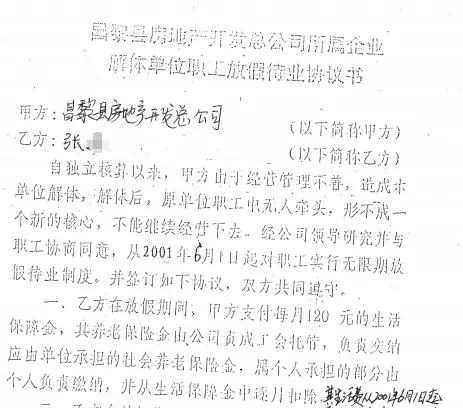 昌黎县房地产开发总公司所属企业
解体单位职工放假待业协议书
甲方：昌黎县房地产开发总公司
（以下简称甲方）
乙方：张
（以下简称乙方）
自独立核算以来，甲方由于经营管理不善，造成本
单位解体，解体后，原单位职工中无人牵头，形不成一
个新的核心，不能继续经营下去。经公司领导研究并与
职工协商同意，从2001年6月1日起对职工实行无限期放
假待业制度。并签订如下协议，双方共同遵守。
一、乙方在放假期间；甲方支付每月120元的生活
保障金，其养老保险金由公司责成工会托管，负责交纳
应由单位承担的社会养老保险金，属个人承担的部分由
个人负责缴纳，并从生活保障金中逐月扣除，其生活费从2001年6月1日起